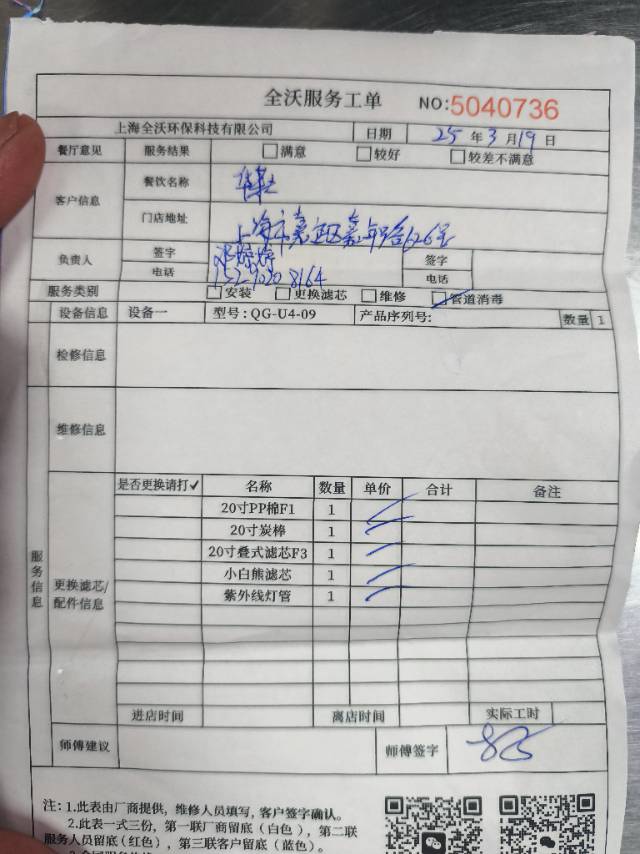 全沃服务工单 NO:5040736
上海全沃环保科技有限公司 日期 25 年 3 月 19 日
餐厅意见 服务结果 □满意 □较好 □较差不满意
客户信息 餐饮名称
门店地址 上海市嘉定区嘉 路626号
负责人 签字 签字
电话 152 9020 8164 电话
服务类别 □安装 □更换滤芯 □维修 □管道消毒
设备信息 设备一 型号:QG-U4-09 产品序列号: 数量 1
检修信息
维修信息
服务信息
更换滤芯/配件信息
是否更换请打✓ 名称 数量 单价 合计 备注
20寸PP棉F1 1
20寸炭棒 1
20寸叠式滤芯F3 1
小白熊滤芯 1
紫外线灯管 1
进店时间 离店时间 实际工时
师傅建议 师傅签字
注:1.此表由厂商提供，维修人员填写，客户签字确认。
2.此表一式三份，第一联厂商留底（白色），第二联
服务人员留底(红色)，第三联客户留底（蓝色）。